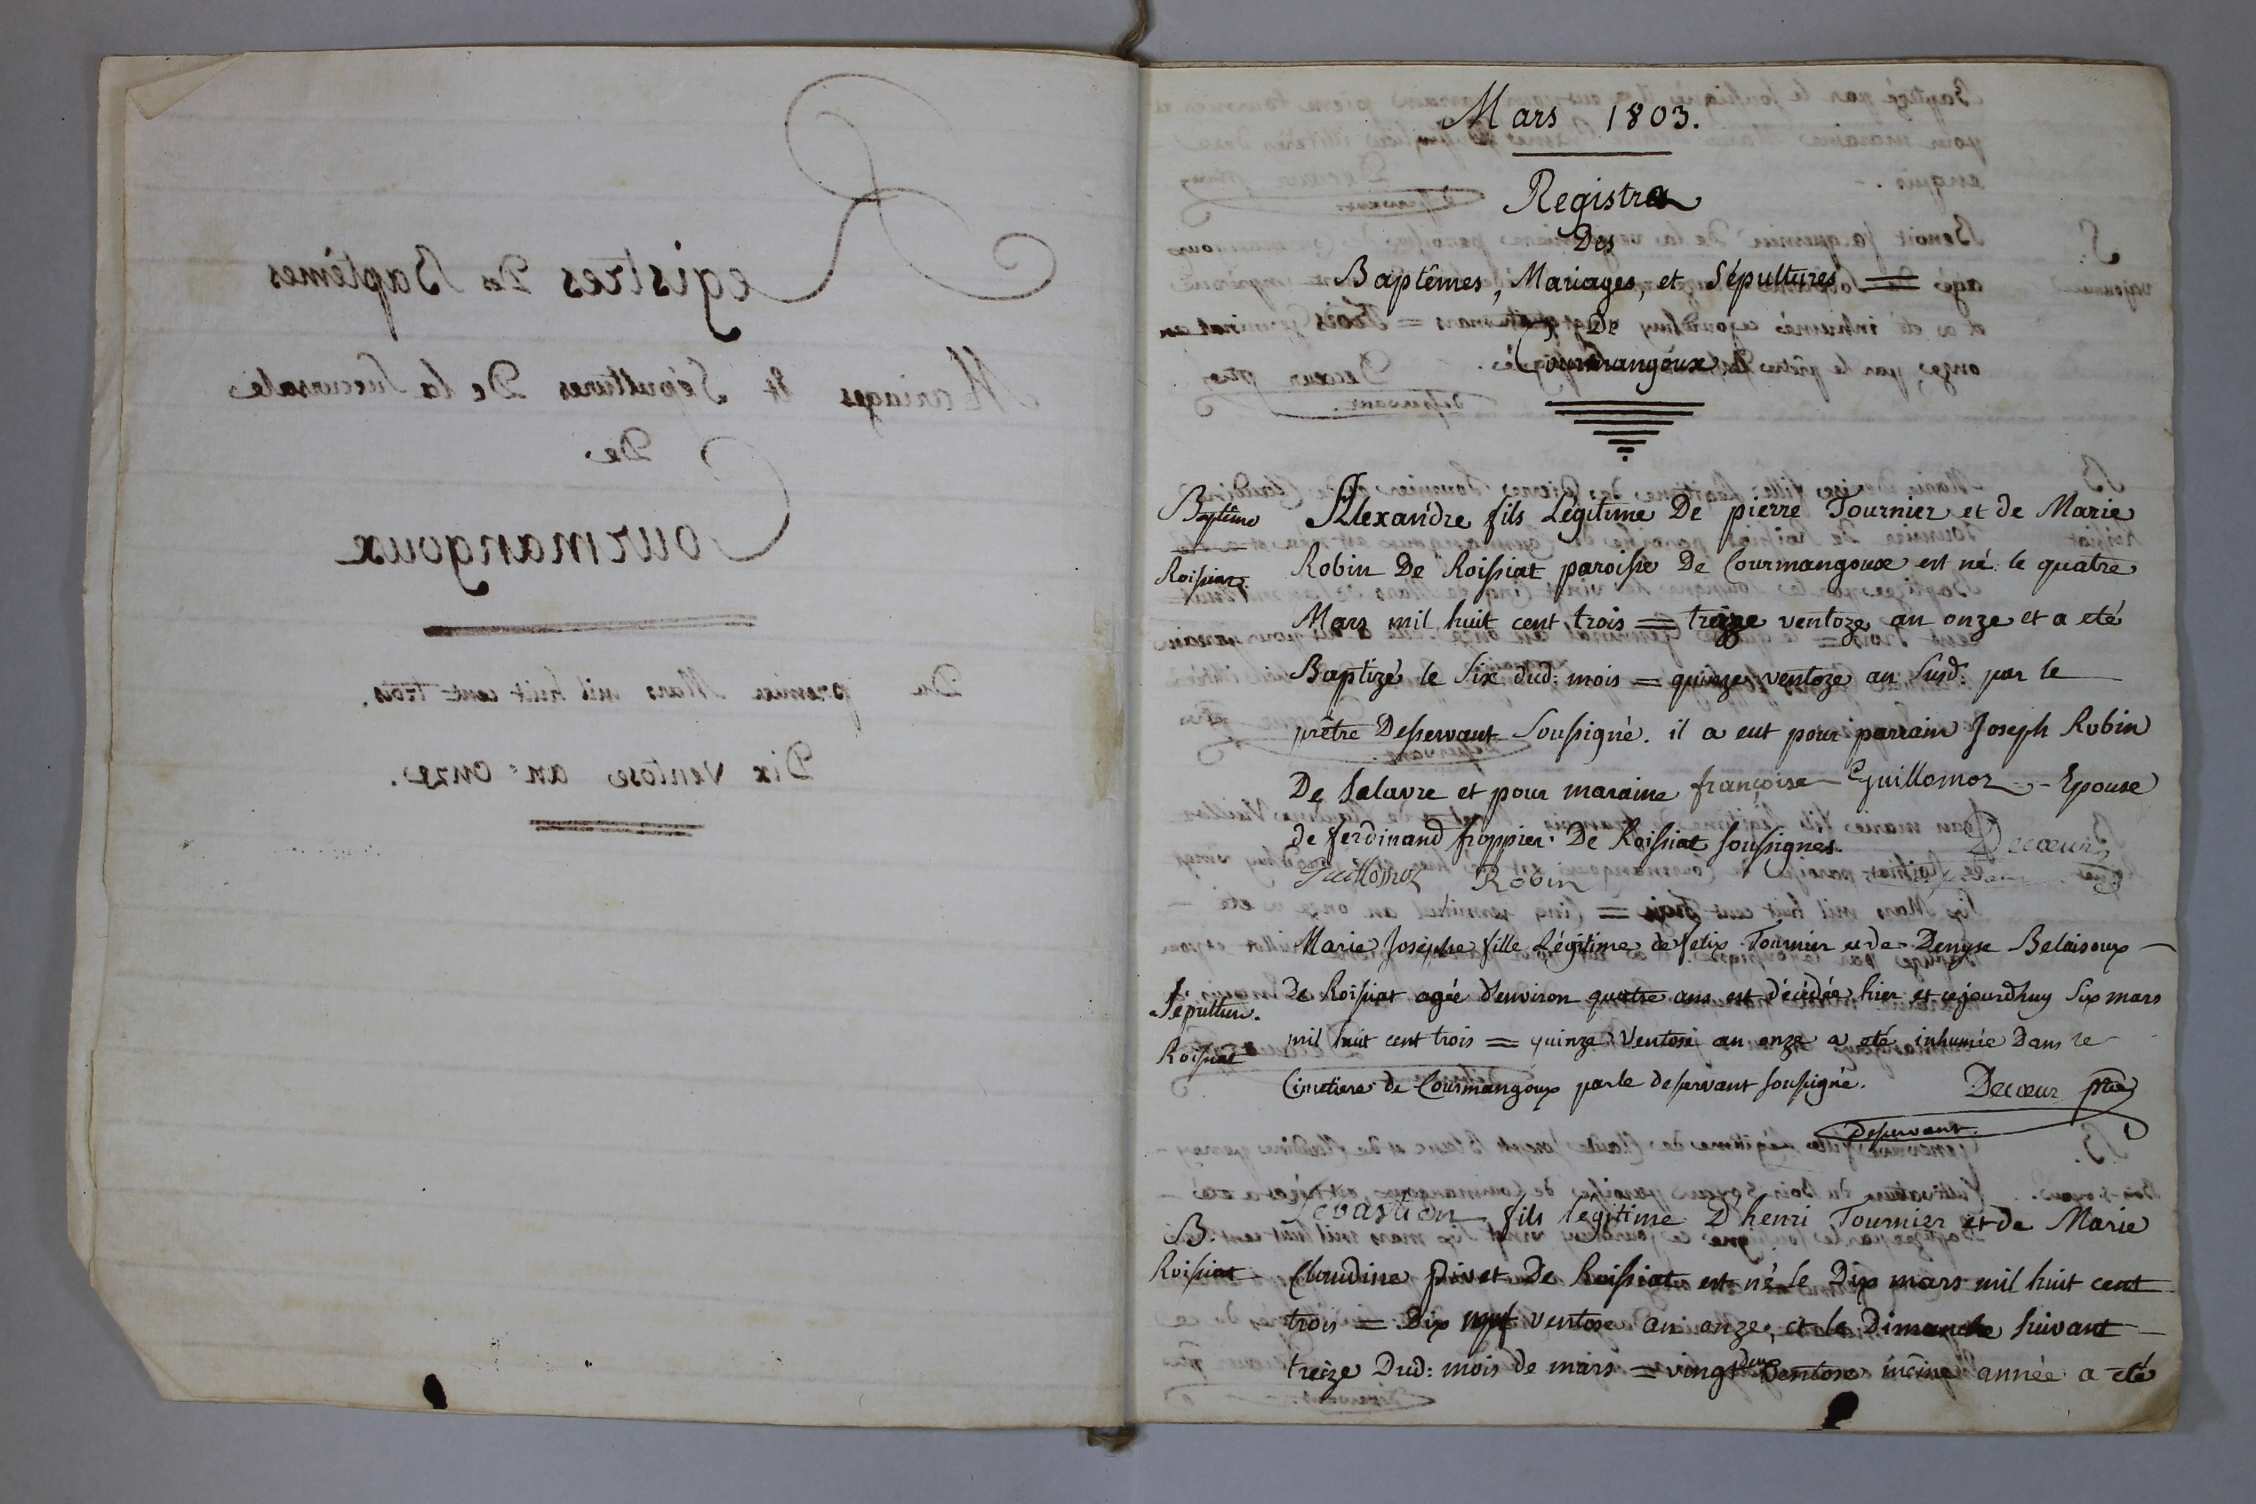 Mars 1803.
Registre
Des
Baptêmes, Mariages, et Sépultures =
De
Courmangoux
Baptême
Roissiat.
Alexandre fils Légitime De pierre Tournier et de Marie
Robin De Roissiat paroisse De Courmangoux est né le quatre
Mars mil huit cent trois = treize ventoze an onze et a eté
Baptizé le Six dud: mois = quinze ventoze an Susd: par le
prêtre Desservant Soussigné. il a eut pour parrain Joseph Robin
De Salavre et pour maraine françoise Guillomoz - Epouse
de ferdinand froppier. De Roissiat soussignés. Decœur
Guillomoz Robin
Sépulture.
Roissiat
Marie Josephe fille Légitime de felix Tournier et de Denyse Belaisoux
De Roissiat agée d'environ quatre ans est décédée hier et cejourdhuy Six mars
mil huit cent trois = quinze Ventose an onze a eté inhumée Dans le
Cimetiere de Courmangoux par le desservant soussigné. Decœur ptre
desservant.
B.
Roissiat
Sebastien fils legitime D'henri Tournier et de Marie
Claudine Pivet De Roissiat est né le Dix mars mil huit cent
trois = Dix neuf ventose an onze, et le Dimanche suivant
treize Dud: mois de mars = vingt deux Ventose même année a eté
Registres Des Baptêmes
Mariages Et Sépultures De la Succursale
De
Courmangoux
Du premier Mars mil huit cent trois.
Dix Ventose an onze.